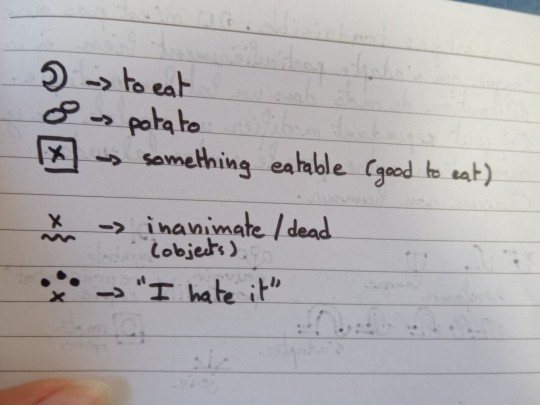 → to eat
→ potato
x → something eatable (good to eat)
x → inanimate / dead
(objects)
x → "I hate it"